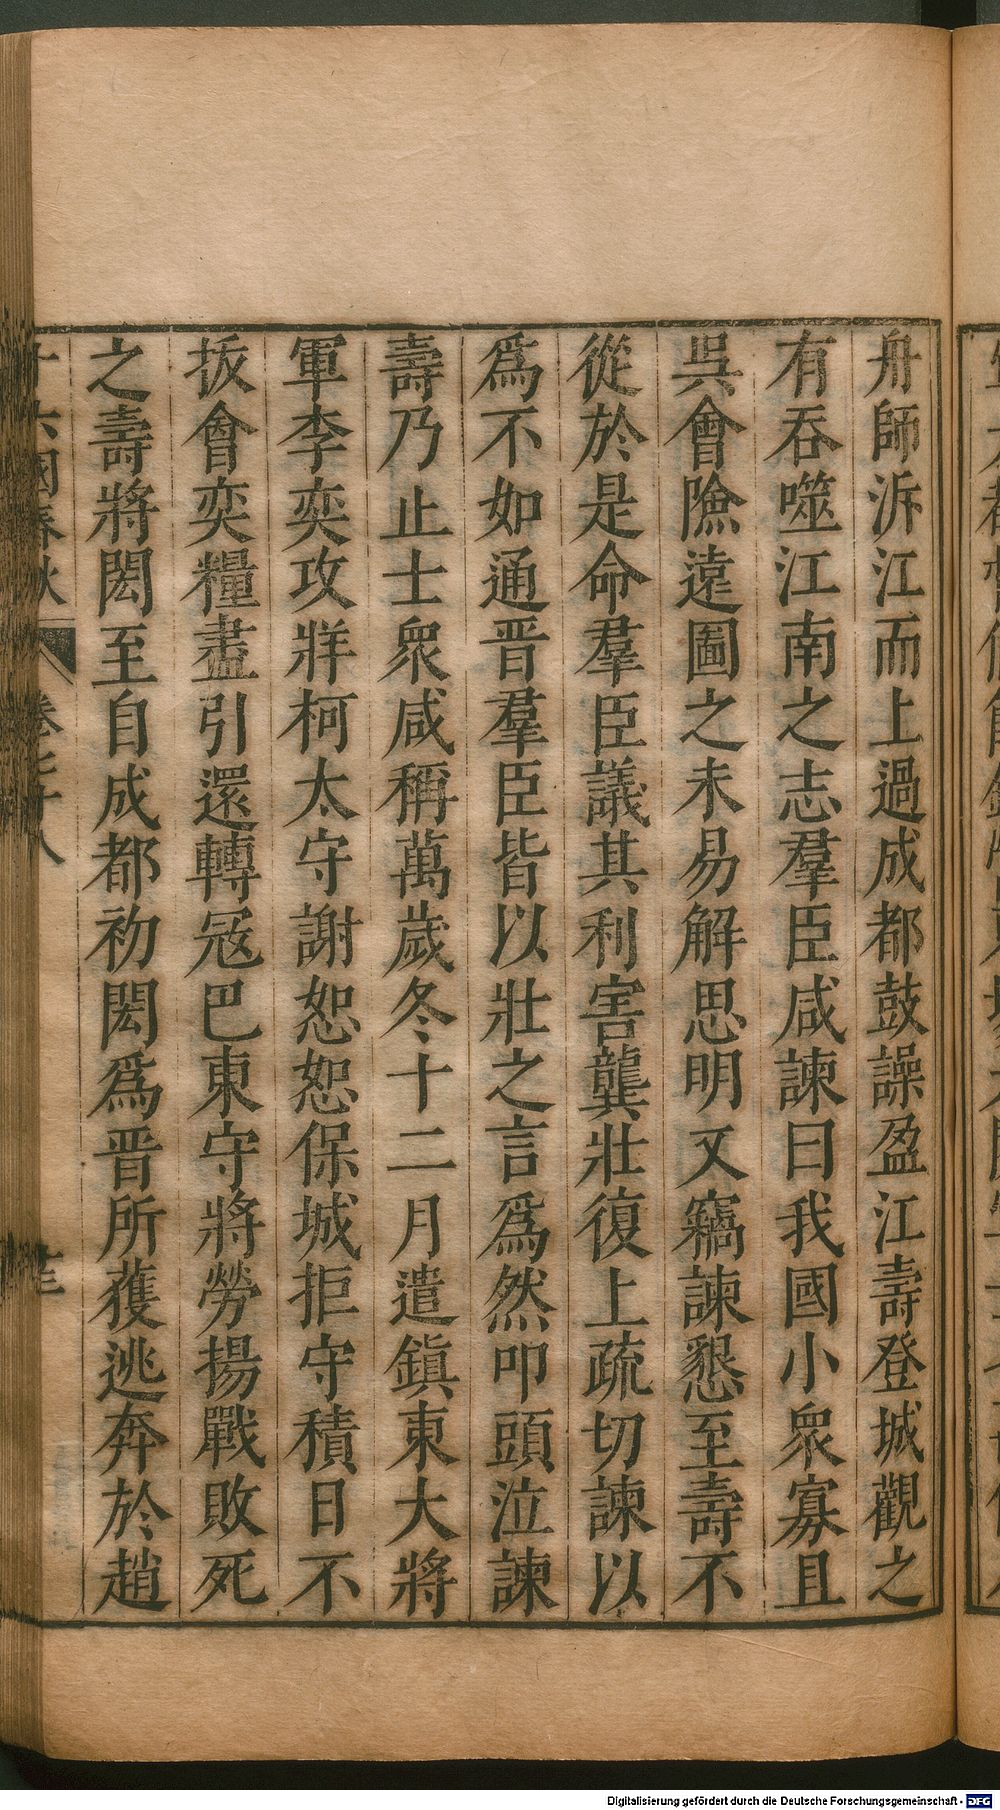 舟師泝江而上過成都鼓譟盈江壽登城觀之
有吞噬江南之志羣臣咸諫曰我國小衆寡且
吳會險遠圖之未易解思明又竊諫懇至壽不
從於是命羣臣議其利害龔壯復上疏切諫以
爲不如通晉羣臣皆以壯之言爲然叩頭泣諫
壽乃止士衆咸稱萬歲冬十二月遣鎭東大將
軍李奕攻牂柯太守謝恕恕保城拒守積日不
拔會奕糧盡引還轉冦巴東守將勞揚戰敗死
之壽將閎至自成都初閎爲晉所獲逃奔於趙
十六國春秋
卷七十八
Digitalisierung gefördert durch die Deutsche Forschungsgemeinschaft - DFG